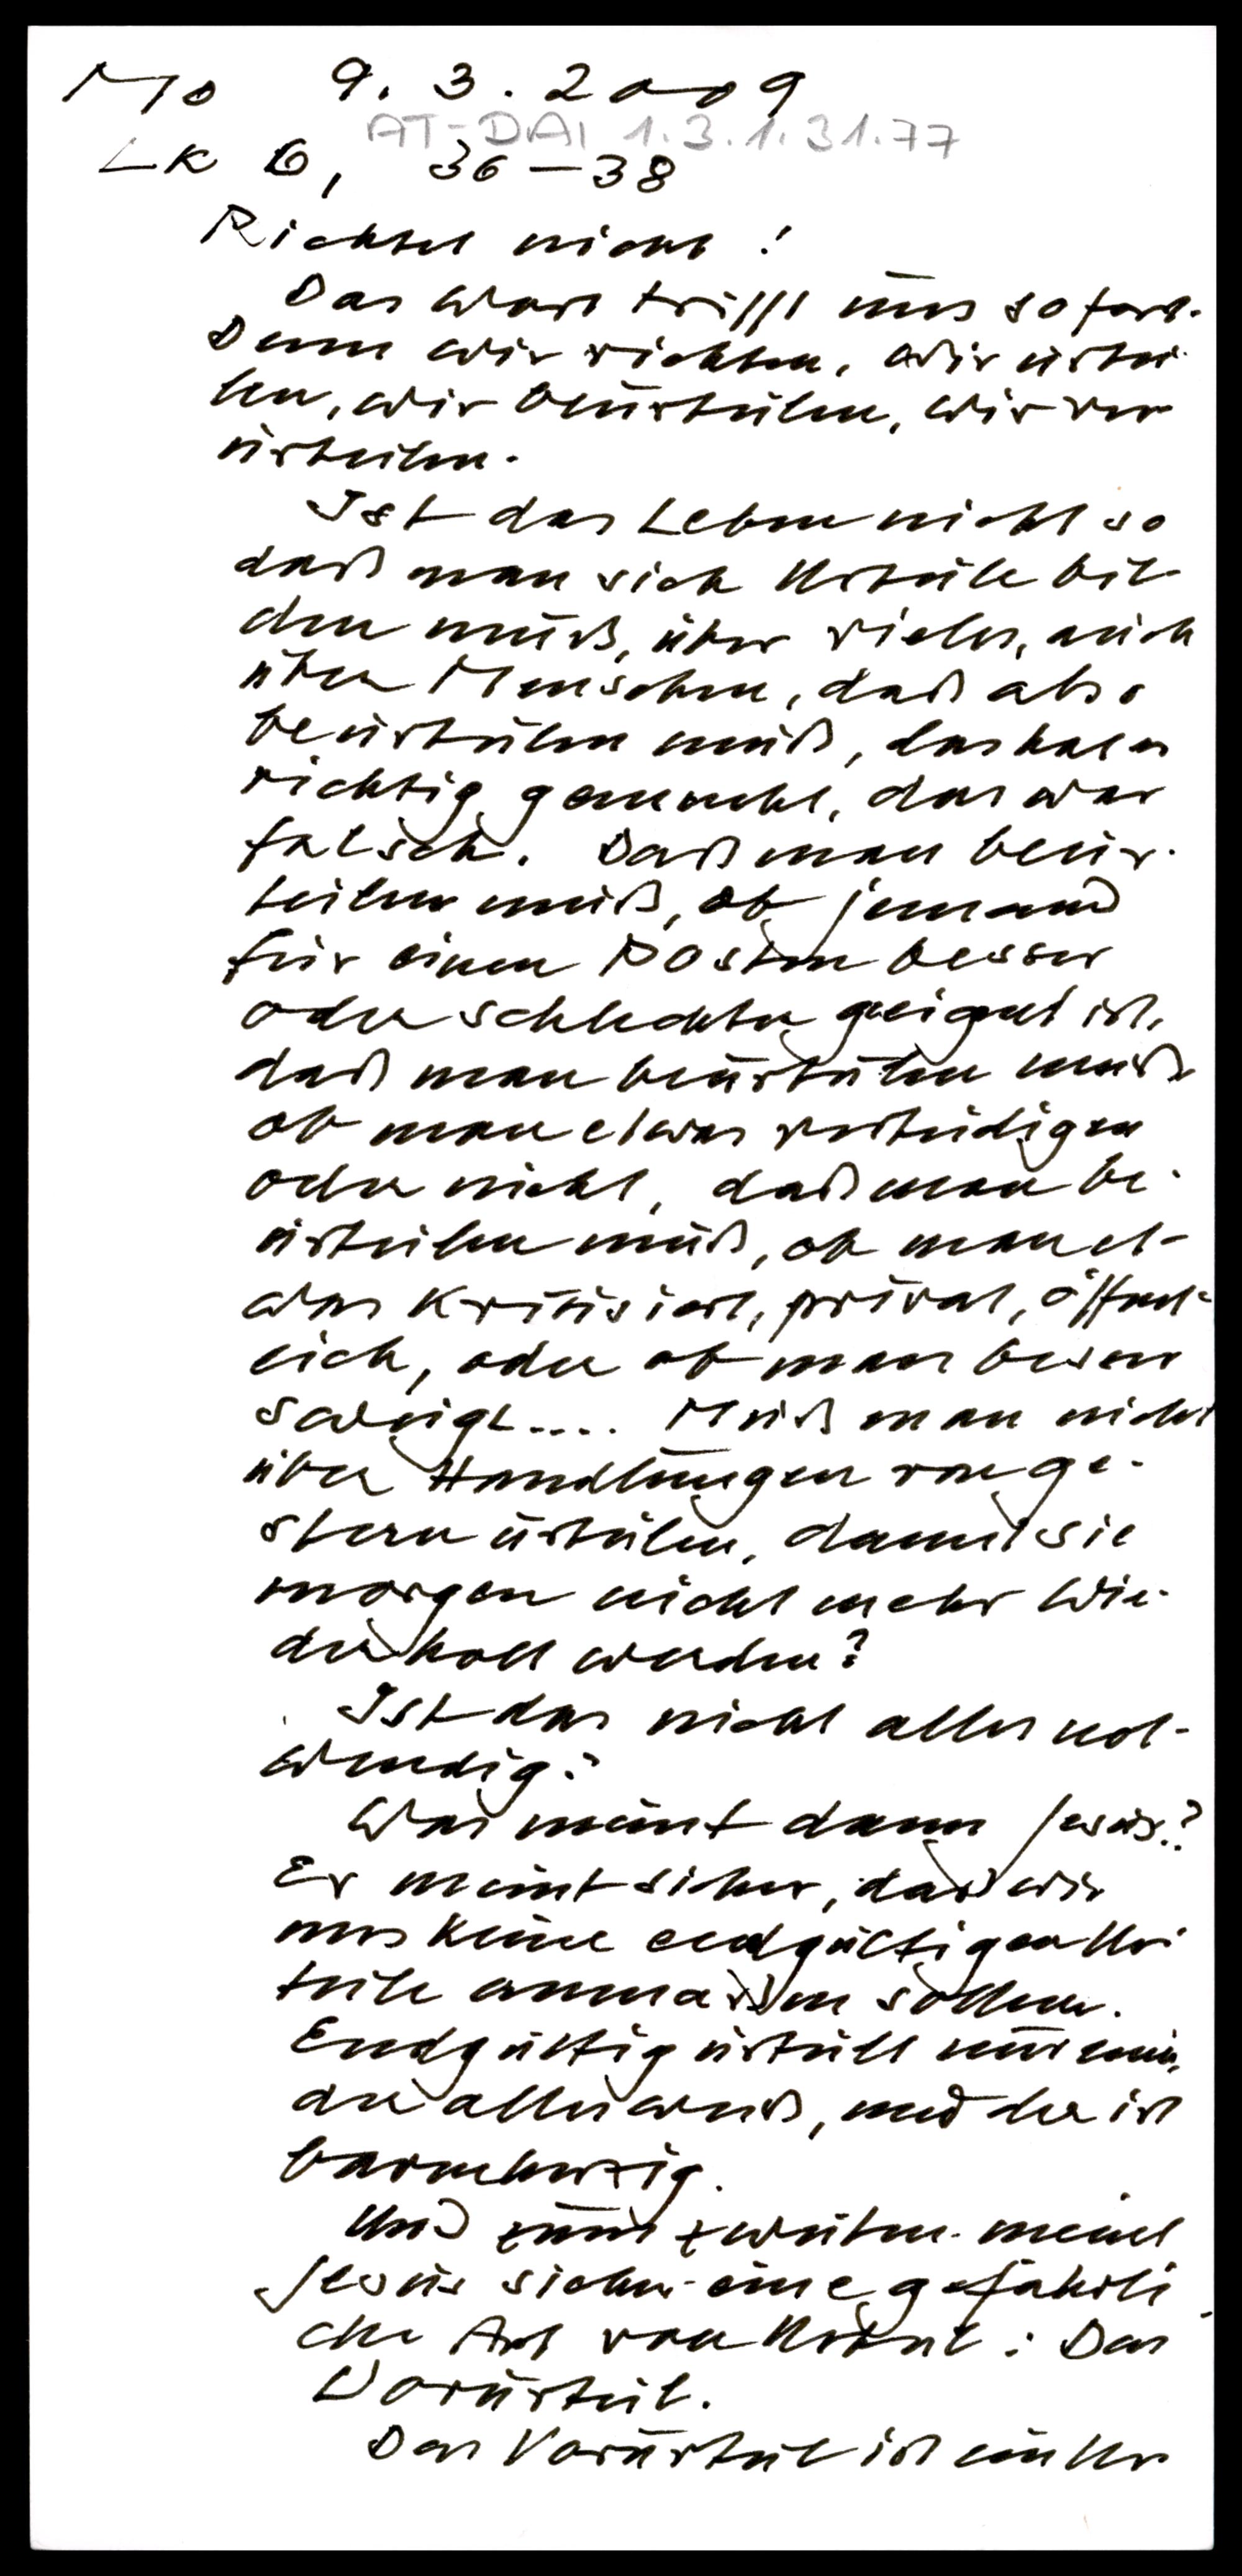 Mo 9. 3. 2009
AT-DAI 1.3.1.31.77
Lk 6, 36-38
Richtet nicht!
Das Wort trifft uns sofort.
Denn wir richten, wir urtei-
len, wir beurteilen, wir ver
urteilen.
Ist das Leben nicht so
daß man sich Urteile bil-
den muß, über vieles, auch
über Menschen, daß also
beurteilen muß, das hat er
richtig gemacht, das war
falsch. Daß man beur-
teilen muß, ob jemand
für einen Posten besser
oder schlechter geeignet ist,
daß man beurteilen muß
ob man etwas verteidigen
oder nicht, daß man be-
urteilen muß, ob man et-
was kritisiert, privat, öffent-
lich, oder ob man besser
schweigt.... Muß man nicht
über Handlungen von ge-
stern urteilen, damit sie
morgen nicht mehr wie-
derholt werden?
Ist das nicht alles not-
wendig?
Was meint dann Jesus?
Er meint sicher, daß wir
uns keine endgültigen Ur-
teile anmaßen sollen.
Endgültig urteilt nur einer,
der alles weiß, und der ist
barmherzig.
Und zum zweiten meint
Jesus sicher eine gefährli
che Art von Urteil: Das
Vorurteil.
Das Vorurteil ist ein Ur